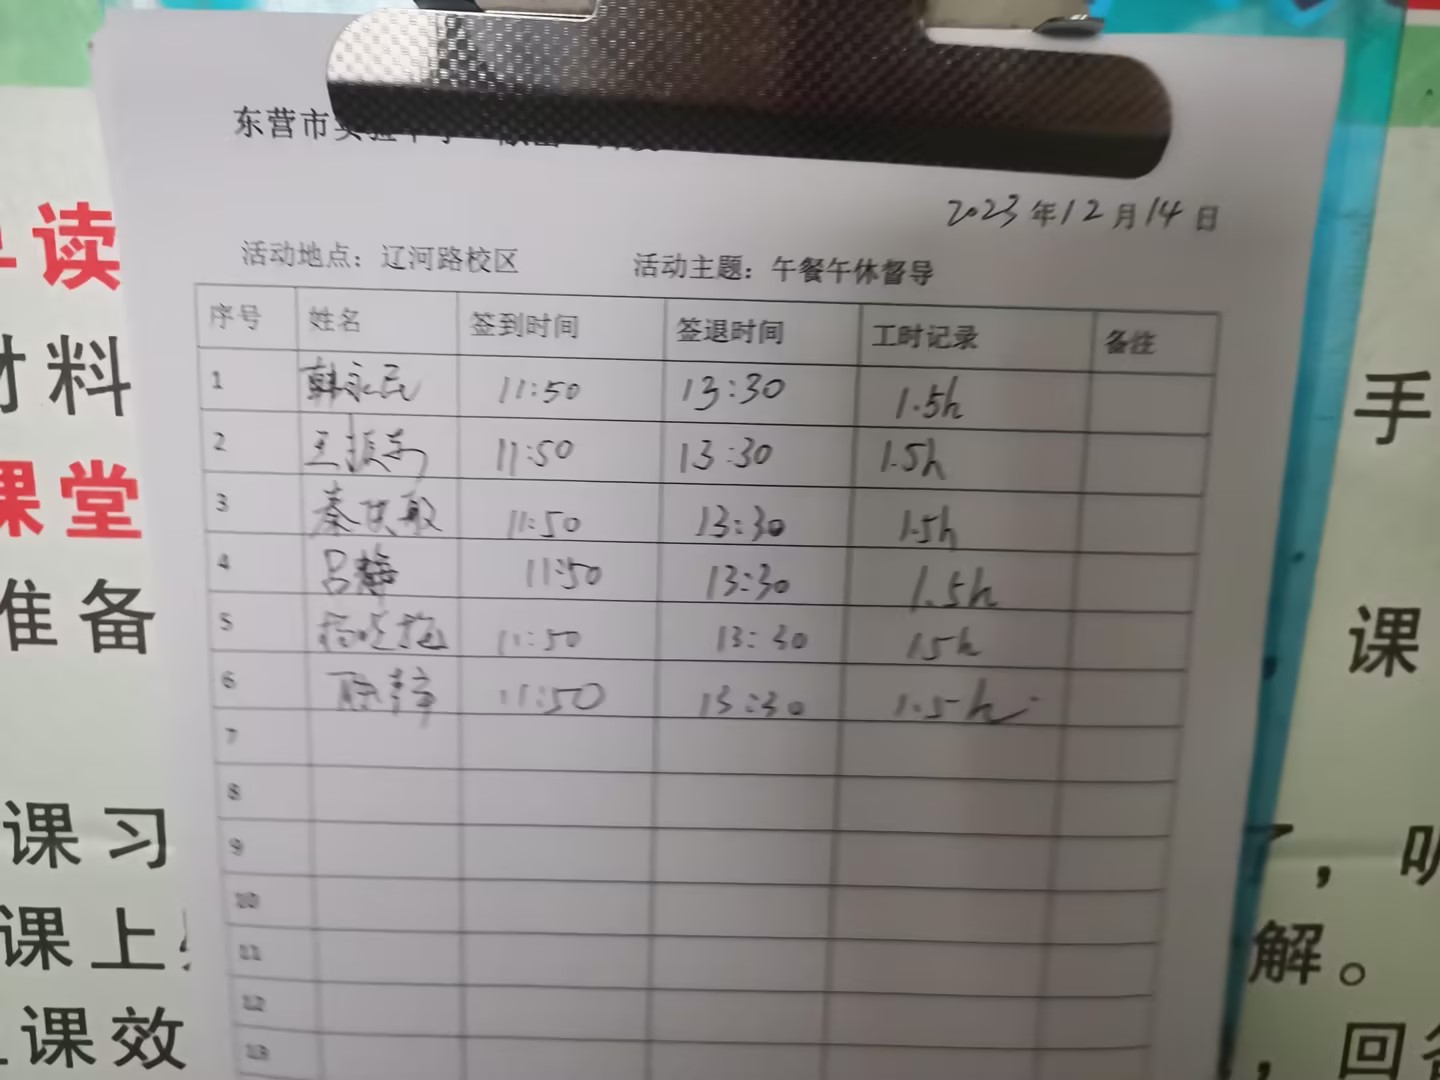 东营市实验中学
2023年12月14日
活动地点：辽河路校区 活动主题：午餐午休督导
序号 姓名 签到时间 签退时间 工时记录 备注
1 韩永民 11:50 13:30 1.5h
2 王振东 11:50 13:30 1.5h
3 秦 敏 11:50 13:30 1.5h
4 吕静 11:50 13:30 1.5h
5 杨晓艳 11:50 13:30 1.5h
6 11:50 13:30 1.5h
7
8
9
10
11
12
13
读
材料
课堂
准备
课习
课上
课效
手
课
了，听
解。
，回答